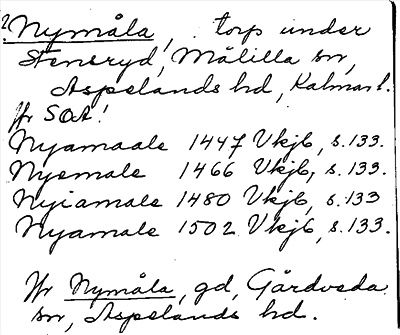 ? Nymåla, torp under
Stensryd, Målilla sn,
Aspelands hd, Kalmar l.
Jfr SOA!
Nyamaale 1447 Vkjb, s. 133.
Nyemale 1466 Vkjb, s. 133.
Nyiamale 1480 Vkjb, s. 133
Nyamale 1502 Vkjb, s. 133.
Jfr Nymåla, gd, Gårdveda
sn, Aspelands hd.